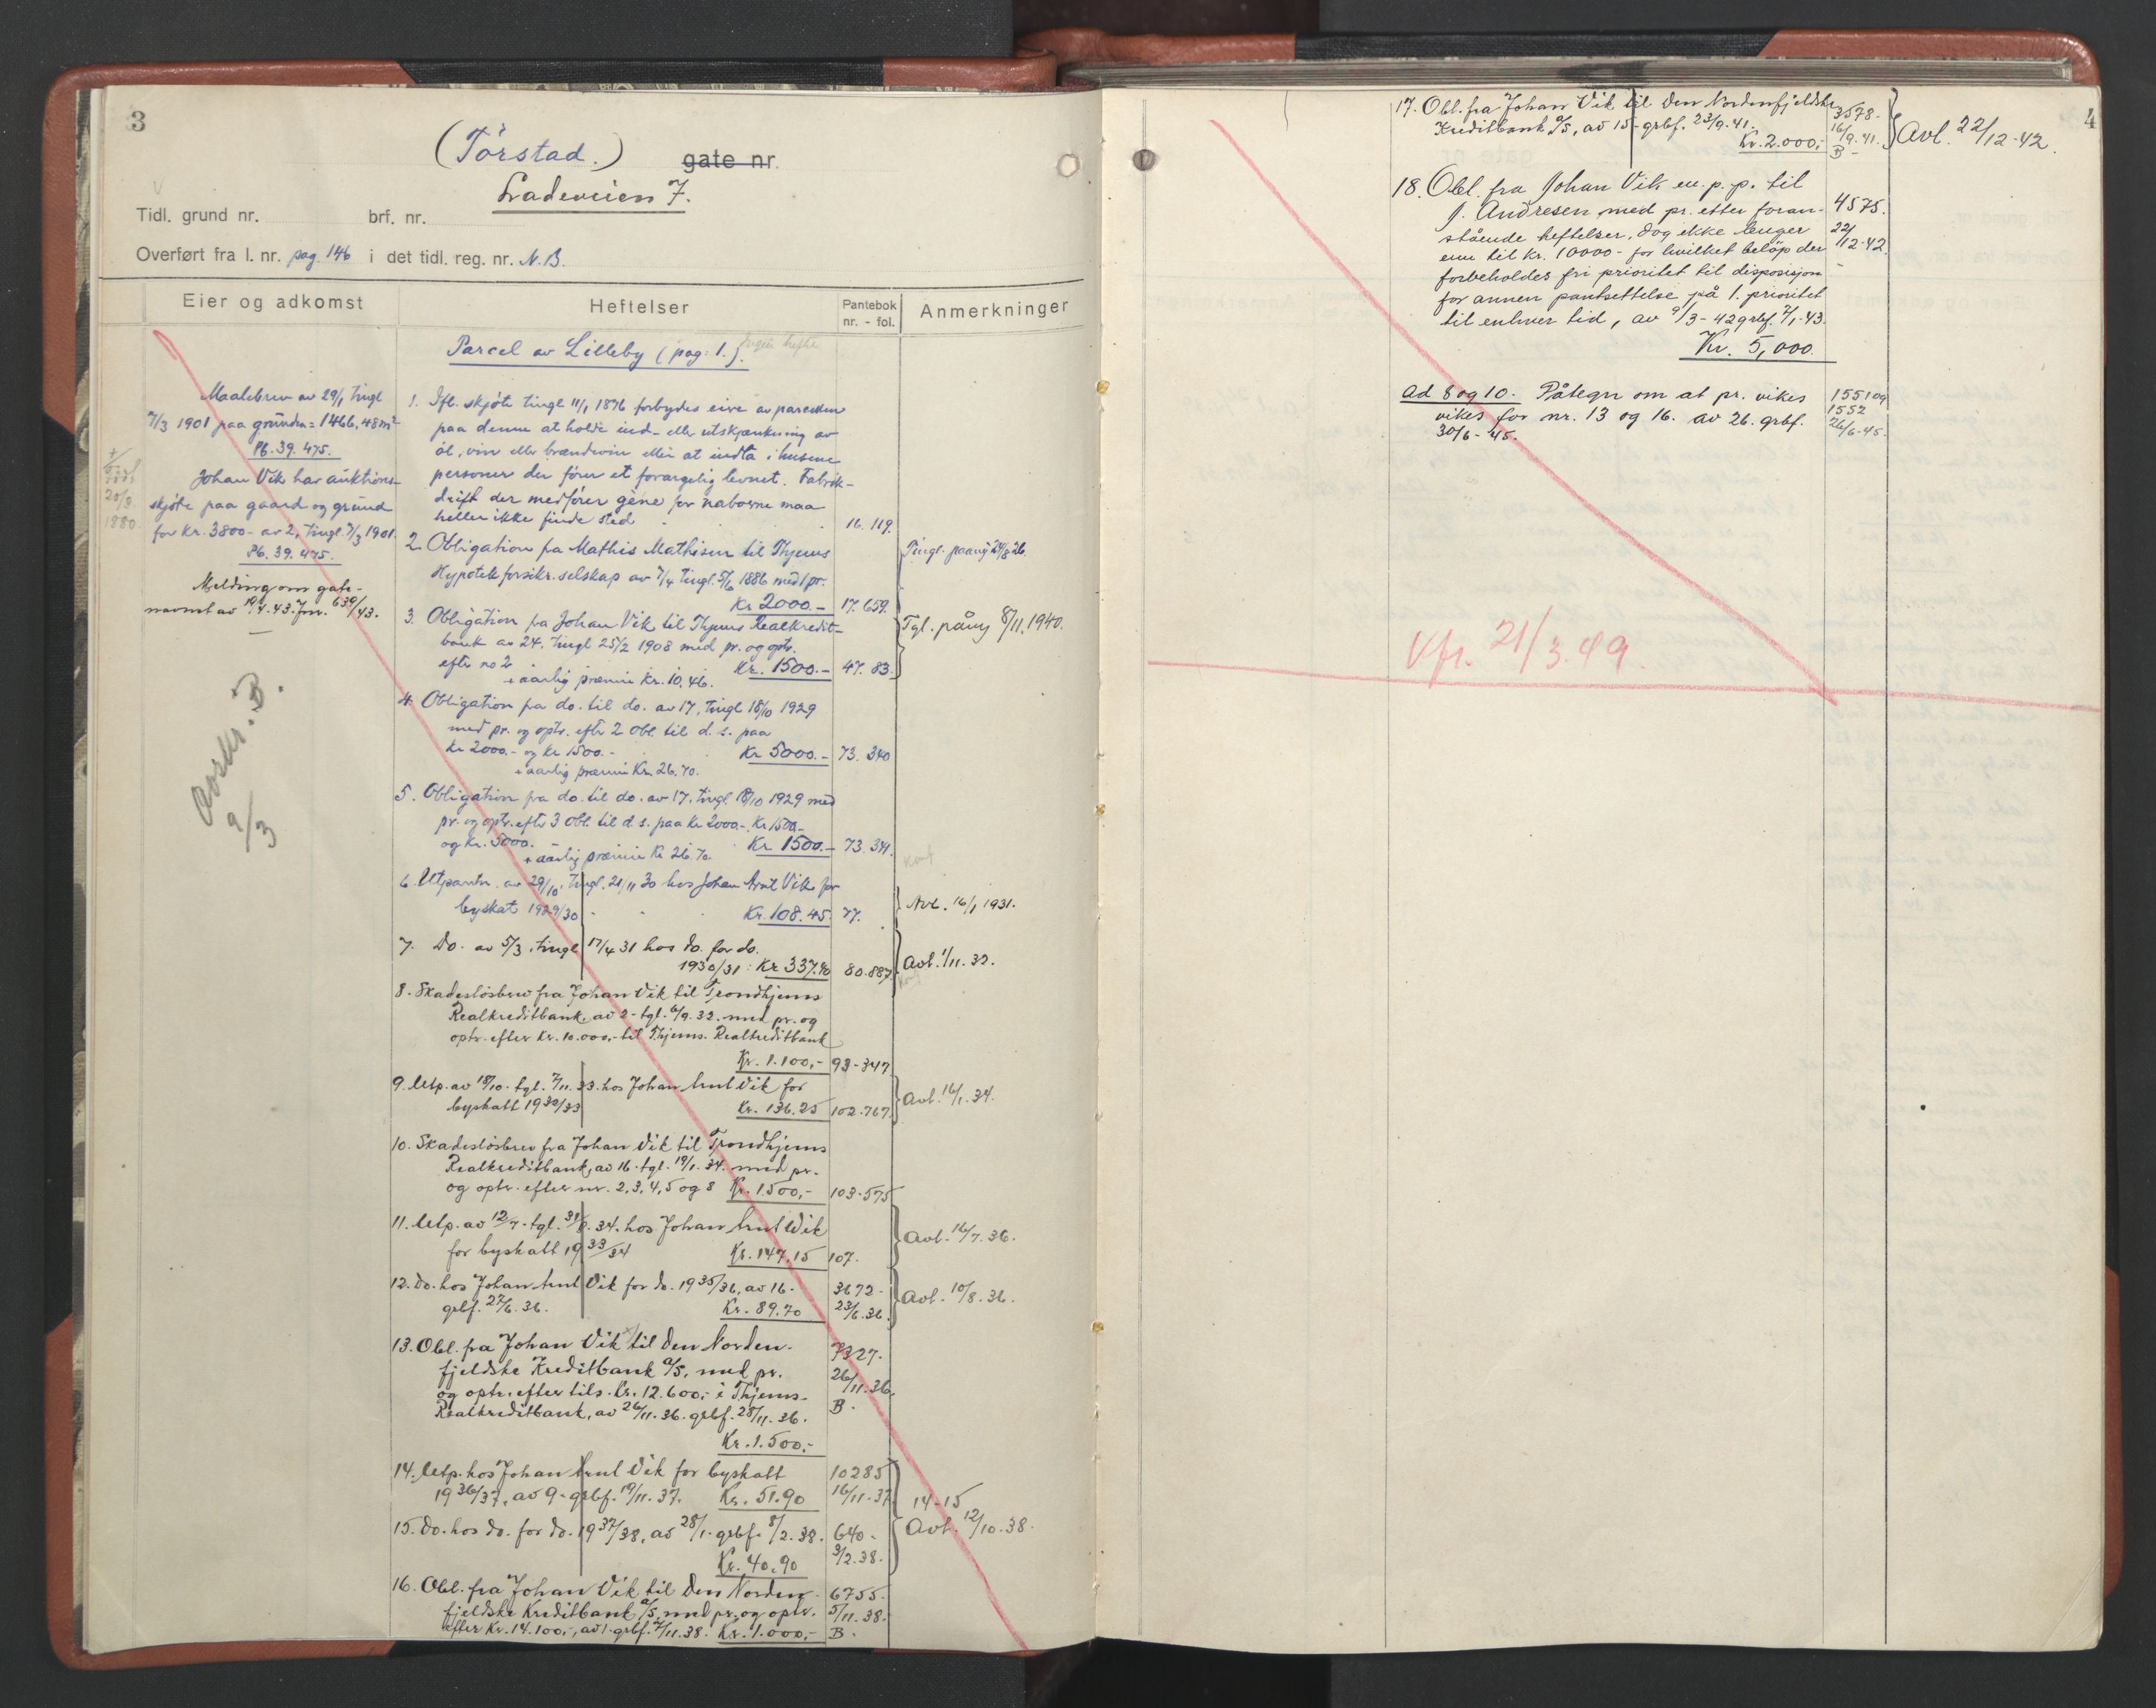 3
(Törstad.) gate nr.
Ladeveien 7.
Tidl. grund nr. brf. nr.
Overført fra l. nr. pag. 146 i det tidl. reg. nr. N.B.
Eier og adkomst
Maalebrev av 29/1 tingl
7/3 1901 paa grunden = 1466,48 m²
Pb. 39. 475.
Johan Vik har auktions-
skjøte paa gaard og grund
for Kr. 3800- av 2, tingl. 7/3 1901.
Pb. 39. 475.
20/8
1880
Melding om gate-
navnet av 19/4.43. Jnr. 639/43.
Avskr. B.
9/3
Heftelser
Pantebok
nr. - fol.
Anmerkninger
Parcel av Lilleby (pag: 1.).
1. Ifl. skjøte tingl 11/1 1876 forbydes eiere av parcellen
paa denne at holde ind- eller utskjænkning av
öl, vin eller brændevin eller at indta i husene
personer der fører et forargelig levnet. Fabrik-
drift der medfører gène for naboerne maa
heller ikke finde sted 16. 119.
2. Obligation fra Mathis Mathisen til Thjems
Hypotekforsikr. selskap av 7/4 tingl. 5/6 1886 med 1 pr.
Kr 2000.- 17. 659.
Tingl. paany 24/8 26.
3. Obligation fra Johan Vik til Thjems Realkredit-
bank av 24. tingl 25/2 1908 med pr. og optr.
efter no 2 Kr. 1500.- 47. 83.
+ aarlig præmie Kr. 10.46.
Tgl. påny 8/11. 1940.
4. Obligation fra do. til do. av 17, tingl 18/10 1929
med pr. og optr. efter 2 obl. til d. s. paa
Kr 2000.- og Kr 1500.- Kr 5000.- 73. 340
+ aarlig præmie Kr. 26.70.
5. Obligation fra do. til do. av 17. tingl. 18/10 1929 med
pr. og optr. efter 3 obl. til d. s. paa Kr 2000.- Kr 1500.-
og Kr. 5000. Kr 1500.- 73. 341.
+ aarlig præmie Kr 26.70.
6. Utpantn. av 29/10, tingl. 21/11 30 hos Johan Arnt Vik for
byskat 1929/30 Kr. 108.45. 77.
Avl. 16/1 1931.
7. Do. av 5/3, tingl 17/4 31 hos do. for do.
1930/31: Kr 337.90 80.887
Avl. 1/11. 32.
8. Skadesløsbrev fra Johan Vik til Trondhjems
Realkreditbank, av 2- tgl. 6/9. 32. med pr. og
optr. efter Kr. 10.000,- til Thjems. Realkreditbank
Kr. 1.100,- 93-347
9. Utp. av 18/10. tgl. 7/11. 33. hos Johan Arnt Vik for
byskatt 1932/33 Kr. 136.25 102.767.
Avl. 16/1. 34.
10. Skadesløsbrev fra Johan Vik til Trondhjems
Realkreditbank, av 16. tgl. 19/1. 34. med pr.
og optr. efter nr. 2, 3, 4, 5 og 8 Kr. 1500,- 103-575
11. Utp. av 12/7. tgl. 31/8. 34. hos Johan Arnt Vik
for byskatt 1933/34 Kr. 147.15 107.
Avl. 16/7. 36.
12. Do. hos Johan Arnt Vik for do. 1935/36, av 16- 3672-
grbf. 27/6. 36. Kr. 89.70 23/6.36.
Avl. 10/8. 36.
13. Obl. fra Johan Vik til Den Norden- 7327.
fjeldske Kreditbank A/S, med pr. 26/11.36.
og optr. efter tils. Kr. 12.600,- i Thjems. B.
Realkreditbank, av 26/11.36. grbf. 28/11. 36.
Kr. 1.500,-
14. Utp. hos Johan Arnt Vik for byskatt 10285
1936/37, av 9- grbf. 19/11. 37. Kr. 51.90 16/11-37.
15. Do. hos do. for do. 1937/38, av 28/1. grbf. 8/2. 38. 640-
Kr. 40.90 3/2.38.
14-15
Avl. 12/10. 38.
16. Obl. fra Johan Vik til Den Norden- 6755.
fjeldske Kreditbank A/S, med pr. og optr. 5/11. 38.
efter Kr. 14.100,-, av 1. grbf. 7/11.38. Kr. 1.000,- B.
4
17. Obl. fra Johan Vik til Den Nordenfjeldske 3578-
Kreditbank A/S, av 15- grbf. 23/9.41. 16/9.41.
Kr. 2.000,- B-
Avl. 22/12-42.
18. Obl. fra Johan Vik en. p. p. til
J. Andresen med pr. etter foran- 4575.
stående heftelser, dog ikke lenger 22/12-42.
enn til kr. 10000- for hvilket beløp der
forbeholdes fri prioritet til disposisjon
for annen pantsettelse på 1. prioritet
til enhver tid, av 9/3-42 grbf. 7/1-43.
Kr. 5,000.
Ad 8 og 10. Påtegn om at pr. vikes 1551 og
vikes for nr. 13 og 16. av 26. grbf. 1552
30/6-45. 26/6-45.
Kfr. 21/3.49.